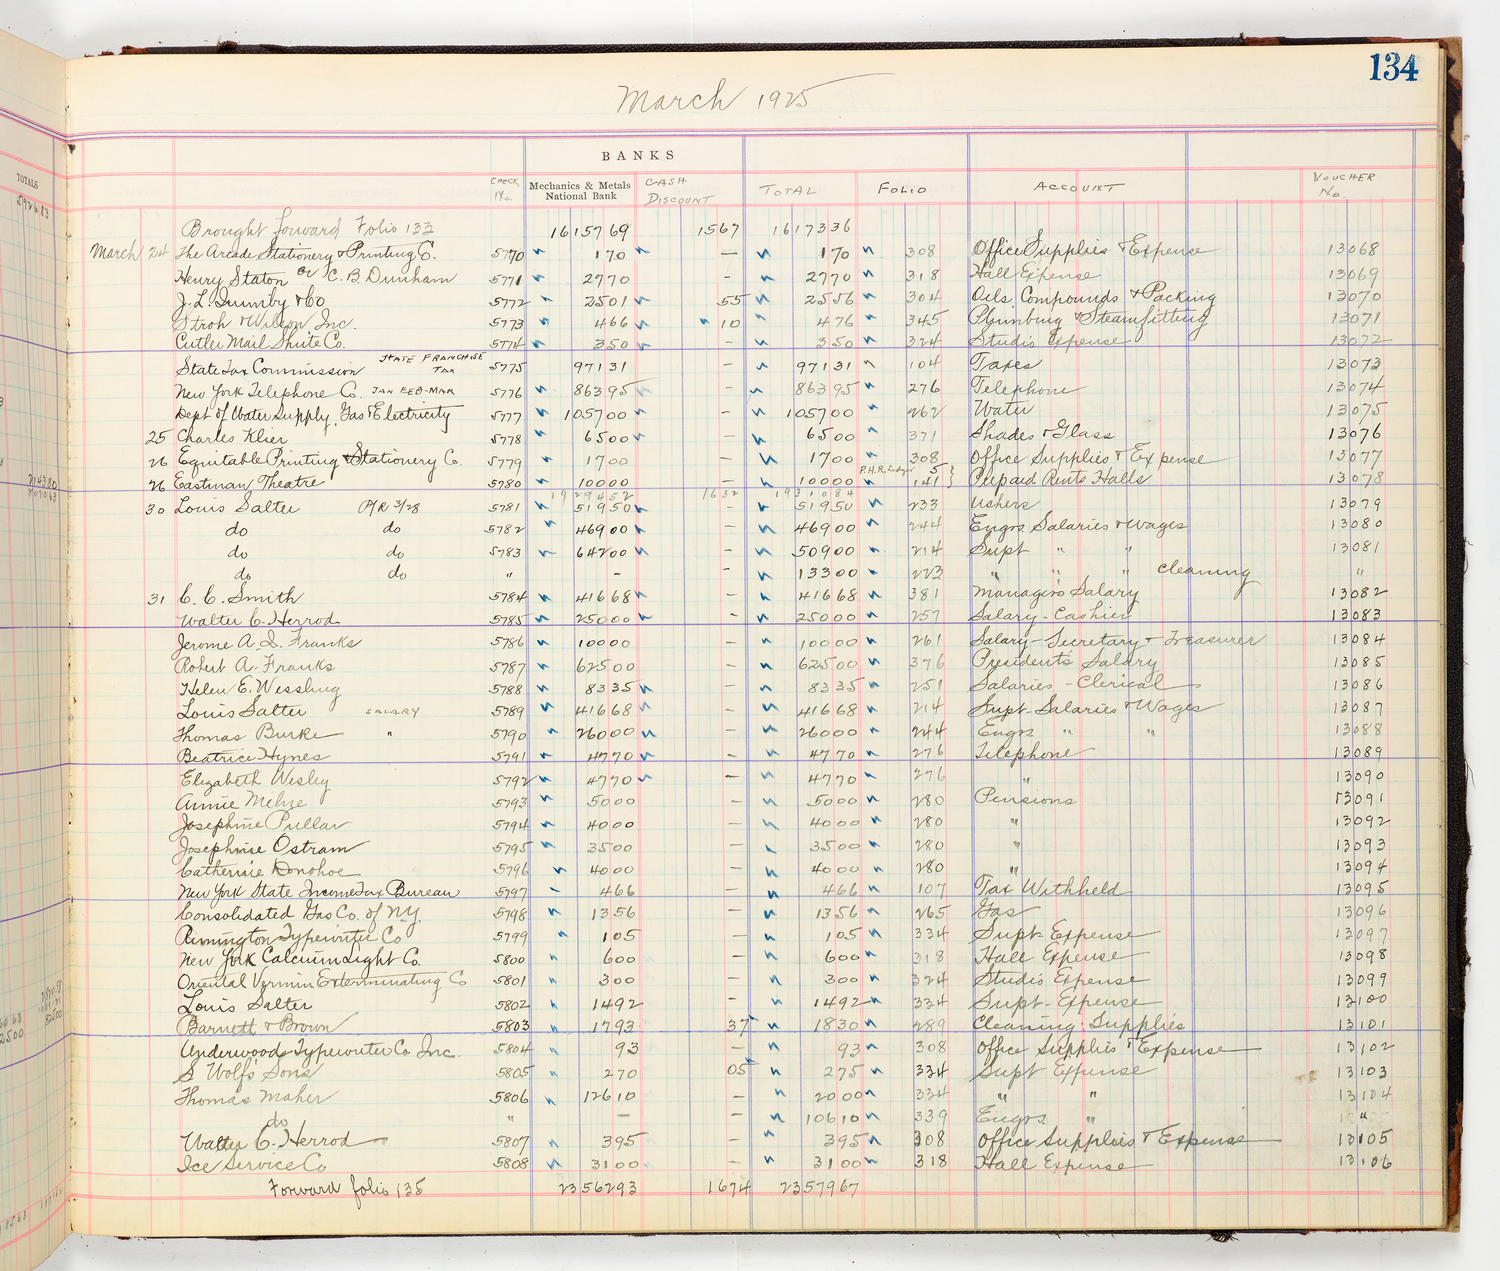 134
March 1925
BANKS
CHECK No. Mechanics & Metals National Bank CASH DISCOUNT TOTAL FOLIO ACCOUNT VOUCHER No.
TOTALS
Brought forward Folio 133 1615769 1567 1617336
March 24 The Arcade Stationery & Printing C. 5770 170 — 170 308 Office Supplies & Expense 13068
Henry Staton or C. B. Dunham 5771 2770 - 2770 318 Hall Expense 13069
J. L. Quimby & Co 5772 2501 55 2556 304 Oils, Compounds & Packing 13070
Stroh & Wilson Inc. 5773 466 10 476 345 Plumbing & Steamfitting 13071
Cutler Mail Shute Co. 5774 350 - 350 324 Studio Expense 13072
State Tax Commission STATE FRANCHISE TAX 5775 97131 - 97131 104 Taxes 13073
New York Telephone Co. JAN FEB-MAR 5776 86395 - 86395 276 Telephone 13074
Dept of Water Supply, Gas & Electricity 5777 105700 - 105700 262 Water 13075
25 Charles Klier 5778 6500 — 6500 371 Shades & Glass 13076
26 Equitable Printing & Stationery Co. 5779 1700 — 1700 308 Office Supplies & Expense 13077
P.H.R. Ledger 5 }
26 Eastman Theatre 5780 10000 — 10000 141 } Prepaid Rents Halls 13078
1929452 1632 1931084
30 Louis Salter P/R 3/28 5781 51950 - 51950 233 Ushers 13079
do do 5782 46900 - 46900 244 Engrs Salaries & Wages 13080
do do 5783 64200 - 50900 214 Supt " " 13081
do do " - - 13300 223 " " " cleaning "
31 C. C. Smith 5784 41668 - 41668 381 Managers Salary 13082
Walter C. Herrod 5785 25000 - 25000 257 Salary - Cashier 13083
Jerome A. Q. Franks 5786 10000 - 10000 261 Salary - Secretary & Treasurer 13084
Robert A. Franks 5787 62500 - 62500 376 President's Salary 13085
Helen E. Wessling 5788 8335 - 8335 251 Salaries - Clerical 13086
Louis Salter SALARY 5789 41668 - 41668 214 Supt-Salaries & Wages 13087
Thomas Burke " 5790 26000 - 26000 244 Engrs " " 13088
Beatrice Hynes 5791 4770 - 4770 276 Telephone 13089
Elizabeth Wesley 5792 4770 - 4770 276 " 13090
Annie Milne 5793 5000 - 5000 280 Pensions 13091
Josephine Pullar 5794 4000 - 4000 280 " 13092
Josephine Ostram 5795 3500 - 3500 280 " 13093
Catherine Donohoe 5796 4000 - 4000 280 " 13094
New York State Income Tax Bureau 5797 466 - 466 107 Tax Withheld 13095
Consolidated Gas Co. of N.Y. 5798 1356 - 1356 265 Gas 13096
Rimington Typewriter Co 5799 105 - 105 334 Supt-Expense 13097
New York Calcium Light Co. 5800 600 - 600 318 Hall Expense 13098
Oriental Vermin Exterminating Co 5801 300 - 300 324 Studio Expense 13099
Louis Salter 5802 1492 - 1492 334 Supt-Expense 13100
Barnett & Brown 5803 1793 37 1830 289 Cleaning Supplies 13101
Underwood Typewriter Co Inc. 5804 93 - 93 308 Office Supplies & Expense 13102
S Wolf's Sons 5805 270 05 275 334 Supt Expense 13103
Thomas Maher 5806 12610 - 2000 334 " " 13104
do " - - 10610 339 Engrs " "
Walter C. Herrod 5807 395 - 395 308 Office Supplies & Expense 13105
Ice Service Co 5808 3100 - 3100 318 Hall Expense 13106
Forward folio 135 2356293 1674 2357967